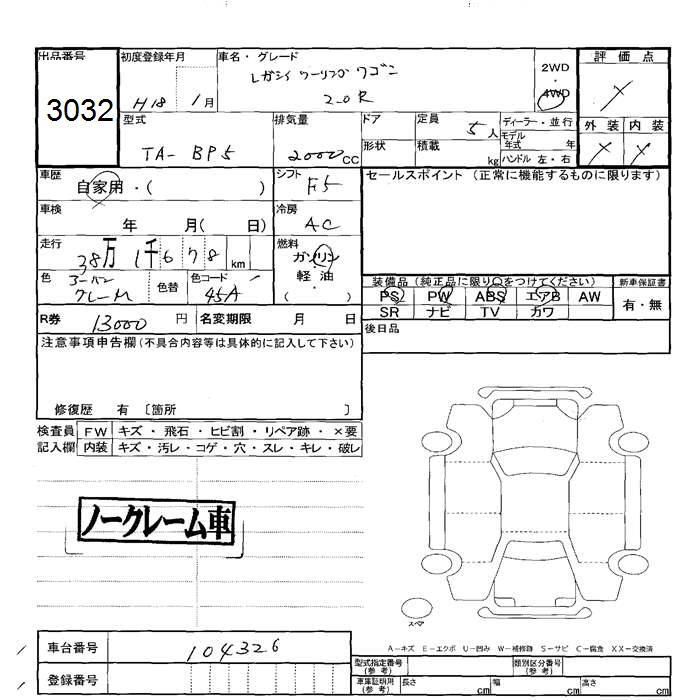 出品番号 初度登録年月 車名・グレード 2WD 評価点
3032 H18 1月 レガシィ ツーリングワゴン ・ 4WD ×
2.0R 外装 内装
型式 排気量 ドア 定員 5人 ディーラー・並行 × ×
TA- BP5 2000CC 形状 積載 kg モデル年式 年
ハンドル 左・右
車歴 シフト セールスポイント (正常に機能するものに限ります)
自家用・( ) F5
車検 冷房
年 月( 日) AC
走行 燃料
38万 1千678km ガソリン
色 色替 色コード 軽油
グレーM 45A ( )
装備品 (純正品に限り○をつけてください) 新車保証書
PS PW ABS エアB AW 有・無
SR ナビ TV カワ
R券 13000円 名変期限 月 日
後日品
注意事項申告欄(不具合内容等は具体的に記入して下さい)
修復歴 有 〔箇所 〕
検査員 FW キズ・飛石・ヒビ割・リペア跡・×要
記入欄 内装 キズ・汚レ・コゲ・穴・スレ・キレ・破レ
ノークレーム車
スペア
A−キズ E−エクボ U−凹み W−補修跡 S−サビ C−腐食 XX−交換済
車台番号 104326
型式指定番号(参考) 類別区分番号(参考)
登録番号
車庫証明用(参考) 長さ cm 幅 cm 高さ cm